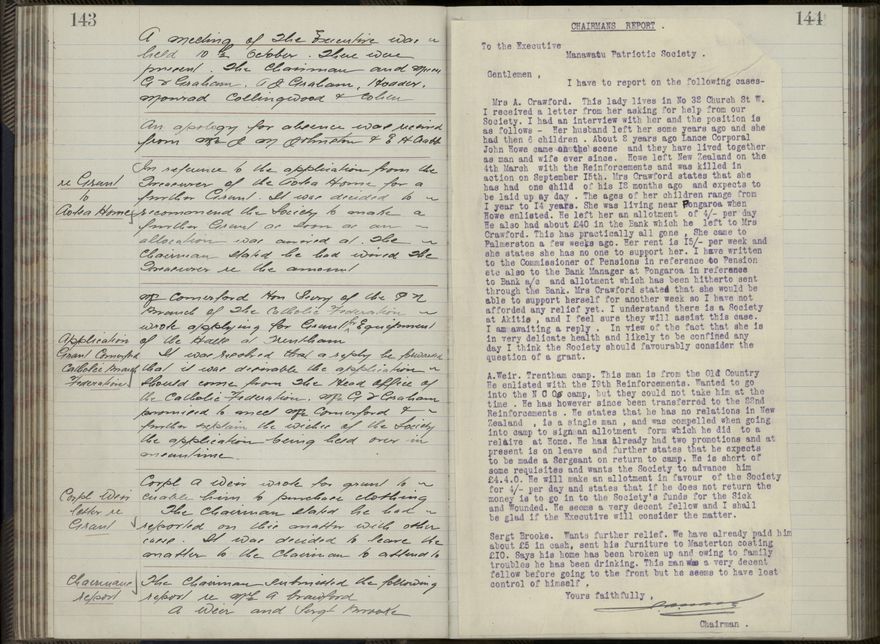 143
A meeting of the Executive was
held 10th October. There were
present The Chairman and Messrs
G & Graham, A J Graham, Hodder,
Monrad Collingwood & Cohen
An apology for absence was received
from Mr J M Johnston & E H
re Grant
to
Aotea Home
In reference to the application from the
Treasurer of the Aotea Home for a
further Grant. It was decided to
recommend the Society to make a
further Grant as soon as an
allocation was arrived at. The
Chairman stated he had wired the
Treasurer re the amount
Application
Grant Comerford
Catholic Branch
Federation
Mr Comerford Hon Secry of the P N
Branch of the Catholic Federation
wrote applying for Grant for Equipment
of the Halls at Trentham
It was resolved that a reply be forwarded
that it was desirable the application
should come from the Head Office of
the Catholic Federation. Mr G & Graham
promised to meet Mr Comerford &
further explain the wishes of the Society
the application being held over in
meantime.
Corpl Weir
letter re
Grant
Corpl A Weir wrote for grant to
enable him to purchase clothing
The Chairman stated he had
reported on this matter with other
cases. It was decided to leave the
matter to the Chairman to attend to
Chairmans
report
The Chairman submitted the following
report re Mrs A Crawford
A Weir and Sergt Brooke
144
CHAIRMANS REPORT .
To the Executive
Manawatu Patriotic Society .
Gentlemen ,
I have to report on the following cases-
Mrs A. Crawford. This lady lives in No 32 Church St W.
I received a letter from her asking for help from our
Society. I had an interview with her and the position is
as follows - Her husband left her some years ago and she
had then 6 children . About 2 years ago Lance Corporal
John Howe came on the scene and they have lived together
as man and wife ever since. Howe left New Zealand on the
4th March with the Reinforcements and was killed in
action on September 15th. Mrs Crawford states that she
has had one child of his 12 months ago and expects to
be laid up ay day . The ages of her children range from
I year to I4 years. She was living near Pongaroa when
Howe enlisted. He left her an allotment of 4/- per day
He also had about £40 in the Bank which he left to Mrs
Crawford. This has practically all gone . She came to
Palmerston a few weeks ago. Her rent is I5/- per week and
she states she has no one to support her. I have written
to the Commissioner of Pensions in reference to Pension
etc also to the Bank Manager at Pongaroa in reference
to Bank a/c and allotment which has been hitherto sent
through the Bank. Mrs Crawford stated that she would be
able to support herself for another week so I have not
afforded any relief yet. I understand there is a Society
at Akitio , and I feel sure they will assist this case.
I am awaiting a reply . In view of the fact that she is
in very delicate health and likely to be confined any
day I think the Society should favourably consider the
question of a grant.
A.Weir. Trentham camp. This man is from the Old Country
He enlisted with the I9th Reinforcements. Wanted to go
into the N C Os camp, but they could not take him at the
time . He has however since been transferred to the 22nd
Reinforcements . He states that he has no relations in New
Zealand , is a single man , and was compelled when going
into camp to sign an allotment form which he did to a
relaive at Home. He has already had two promotions and at
present is on leave and further states that he expects
to be made a Sergeant on return to camp. He is short of
some requisites and wants the Society to advance him
£4.4.0. He will make an allotment in favour of the Society
for 4/- per day and states that if he does not return the
money is to go in to the Society's funds for the Sick
and Wounded. He seems a very decent fellow and I shall
be glad if the Executive will consider the matter.
Sergt Brooke. Wants further relief. We have already paid him
about £5 in cash, sent his furniture to Masterton costing
£I0. Says his home has been broken up and owing to family
troubles he has been drinking. This man was a very decent
fellow before going to the front but he seems to have lost
control of himself .
Yours faithfully ,
Chairman .